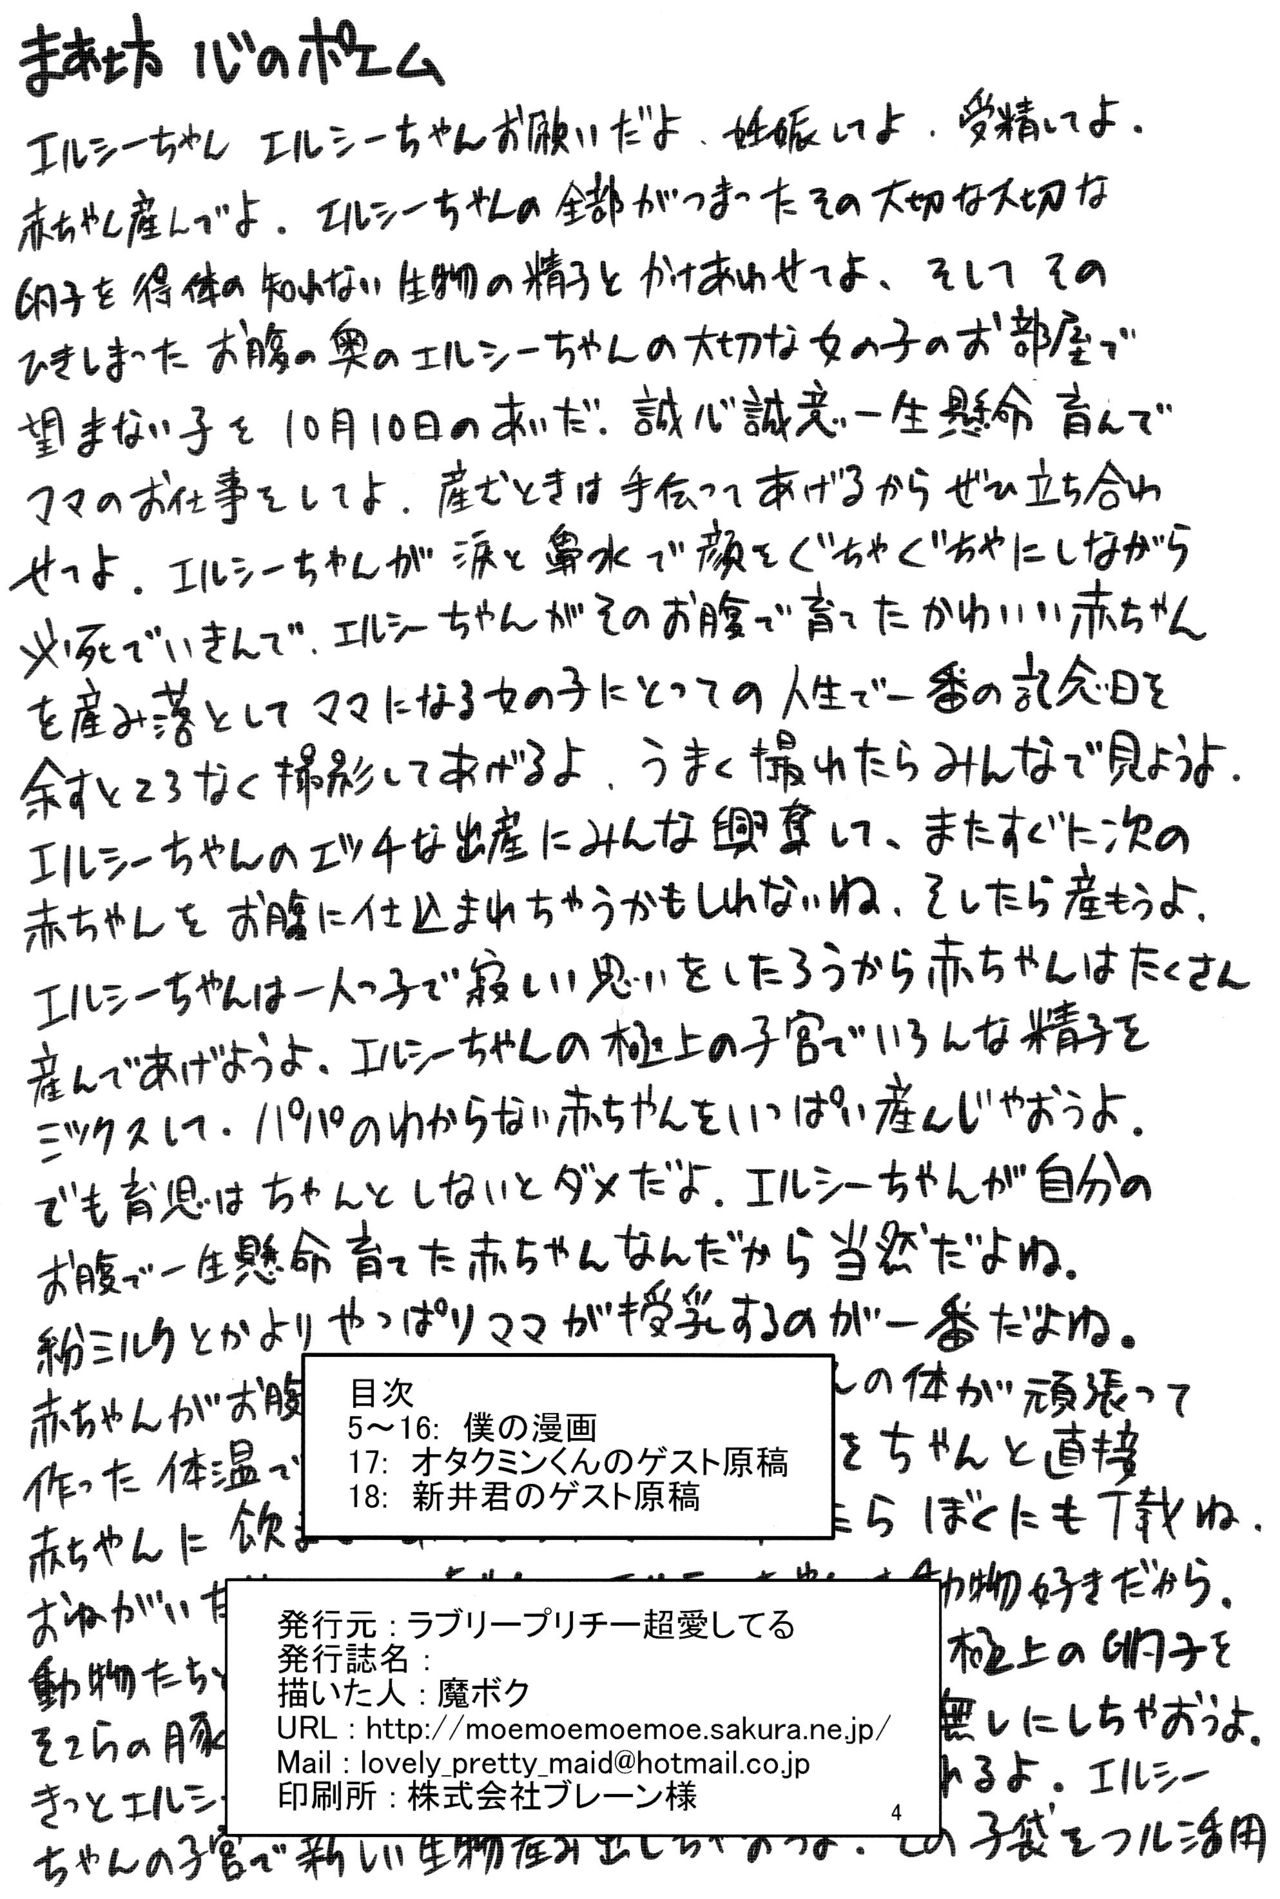 まあ坊 心のポエム
エルシーちゃん エルシーちゃんお願いだよ、妊娠してよ、受精してよ。
赤ちゃん産んでよ。エルシーちゃんの全部がつまったその大切な大切な
卵子を得体の知れない生物の精子とかけあわせてよ、そしてその
ひきしまったお腹の奥のエルシーちゃんの大切な女の子のお部屋で
望まない子を10月10日のあいだ、誠心誠意一生懸命育んで
ママのお仕事をしてよ。産むときは手伝ってあげるからぜひ立ち合わ
せてよ。エルシーちゃんが涙と鼻水で顔をぐちゃぐちゃにしながら
必死でいきんで、エルシーちゃんがそのお腹で育てたかわいい赤ちゃん
を産み落としてママになる女の子にとっての人生で一番の記念日を
余すところなく撮影してあげるよ、うまく撮れたらみんなで見ようよ。
エルシーちゃんのエッチな出産にみんな興奮して、またすぐに次の
赤ちゃんをお腹に仕込まれちゃうかもしれないね、そしたら産もうよ。
エルシーちゃんは一人っ子で寂しい思いをしたろうから赤ちゃんはたくさん
産んであげようよ。エルシーちゃんの極上の子宮でいろんな精子を
ミックスして、パパのわからない赤ちゃんをいっぱい産んじゃおうよ。
でも育児はちゃんとしないとダメだよ。エルシーちゃんが自分の
お腹で一生懸命育てた赤ちゃんなんだから当然だよね。
粉ミルクとかよりやっぱりママが授乳するのが一番だよね。
赤ちゃんがお腹 んの体が頑張って
作った体温で をちゃんと直接
赤ちゃんに飲ま たらぼくにも下載ね。
おねがい 動物好きだから。
動物たちと 極上の卵子を
そこらの豚 無しにしちゃおうよ。
きっとエルシー れるよ。エルシー
ちゃんの子宮で新しい生物産み出しちゃおうよ。その子袋をフル活用
目次
5～16: 僕の漫画
17: オタクミンくんのゲスト原稿
18: 新井君のゲスト原稿
発行元：ラブリープリチー超愛してる
発行誌名：
描いた人：魔ボク
URL：http://moemoemoemoe.sakura.ne.jp/
Mail：lovely_pretty_maid@hotmail.co.jp
印刷所：株式会社ブレーン様
4